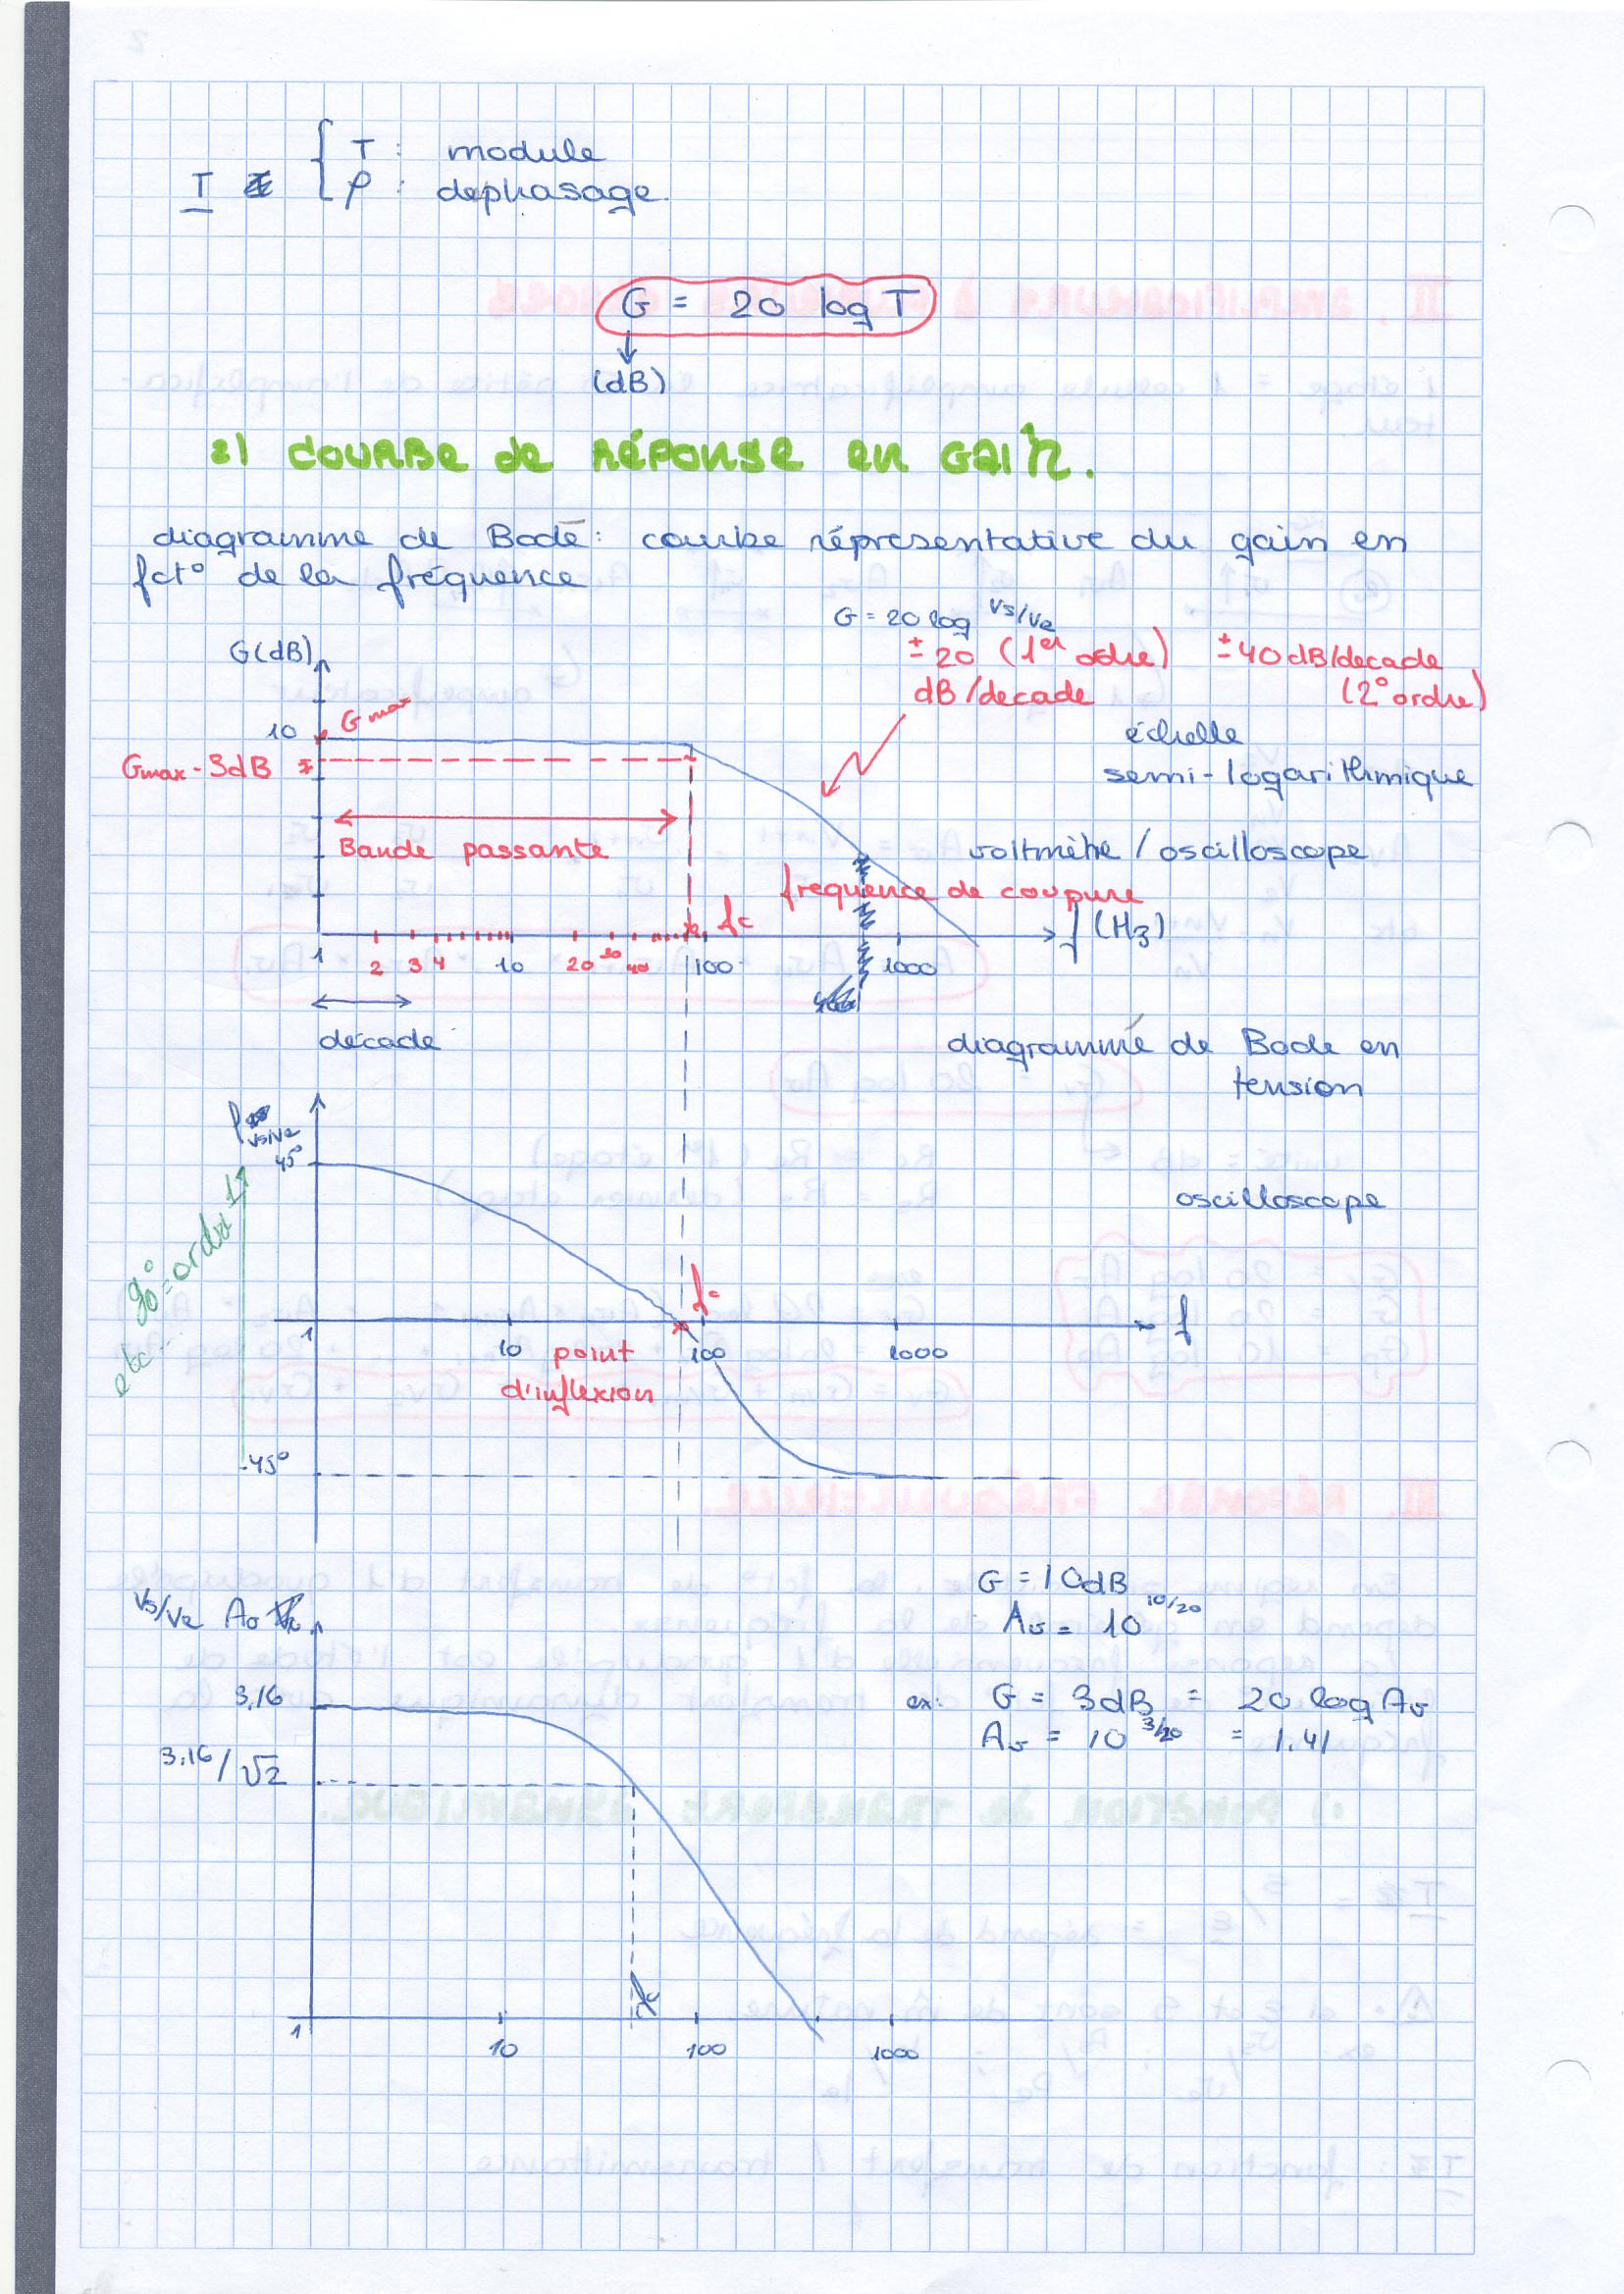 T : module
T φ : dephasage.
G = 20 log T
(dB)
2) COURBE de RÉPONSE en GAIN.
diagramme de Bode : courbe réprésentative du gain en
fct° de la fréquence
G = 20 log Vs/Ve
G(dB)
± 20 (1er odre) ± 40 dB/decade
dB/decade (2° ordre)
Gmax
10
échelle
Gmax - 3dB
semi-logarithmique
Bande passante
voltmètre / oscilloscope
frequence de coupure
fc
f (Hz)
1 2 3 4 10 20 30 40 100 1000
décade
diagramme de Bode en
tension
φ Vs/Ve
45°
oscilloscope
90° = ordre 1
etc...
fc
f
1 10 100 1000
point
d'inflexion
-45°
G = 10dB
Vs/Ve Av
Av = 10^10/20
3,16
ex: G = 3dB = 20 log Av
Av = 10^3/20 = 1.41
3.16/√2
1 10 100 1000